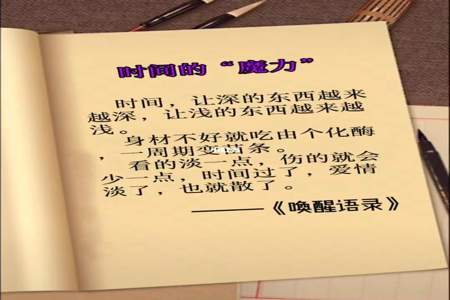 时间的“魔力”
时间，让深的东西越来
越深，让浅的东西越来越
浅。
身材不好就吃由个化酶
，一周期变苗条。
看的淡一点，伤的就会
少一点，时间过了，爱情
淡了，也就散了。
——《唤醒语录》